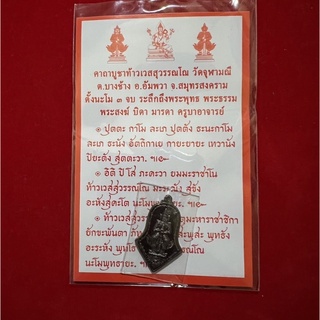 คาถาบูชาท้าวเวสสุวรรณโณ วัดจุฬามณี
ต.บางช้าง อ.อัมพวา จ.สมุทรสงคราม
ตั้งนะโม ๓ จบ ระลึกถึงพระพุทธ พระธรรม
พระสงฆ์ บิดา มารดา ครูบาอาจารย์
๑ ปุตตะ กาโม ละเภ ปุตตัง ธะนะกาโม
ละเภ ธะนัง อัตถิกาเย กายะยายะ เทวานัง
ปิยะตัง สุตตะวา.
๑ อิติ ปิ โส ภะคะวา ยมมะราชาโน
ท้าวเวสสุวรรณโณ
อะหังสุคะโต นะโม
๑ ท้าวเวสสุวรรณโณ มหาราชาชิกา
ยักขะพันตา พุทธัง
อะระหัง พุทโธ
นะโมพุทธายะ.